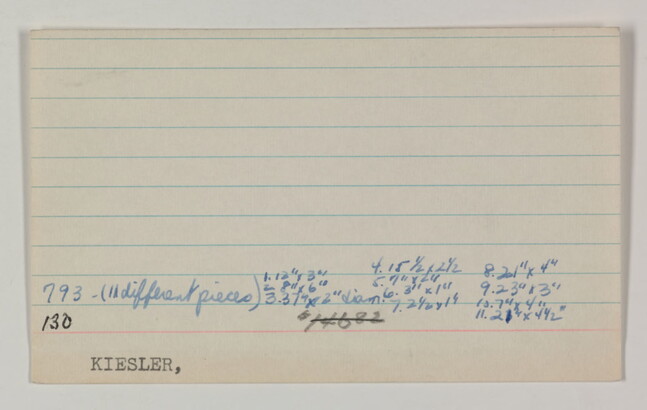 793 - (11 different pieces)
1. 12" x 3"
2. 8" x 6"
3. 37" x 2" diam
4. 15 1/2 x 2 1/2
5. 7" x 2"
6. 3" x 1"
7. 2 1/2 x 1"
8. 21" x 4"
9. 23" x 3"
10. 7" x 4"
11. 21" x 4 1/2"
130
KIESLER,